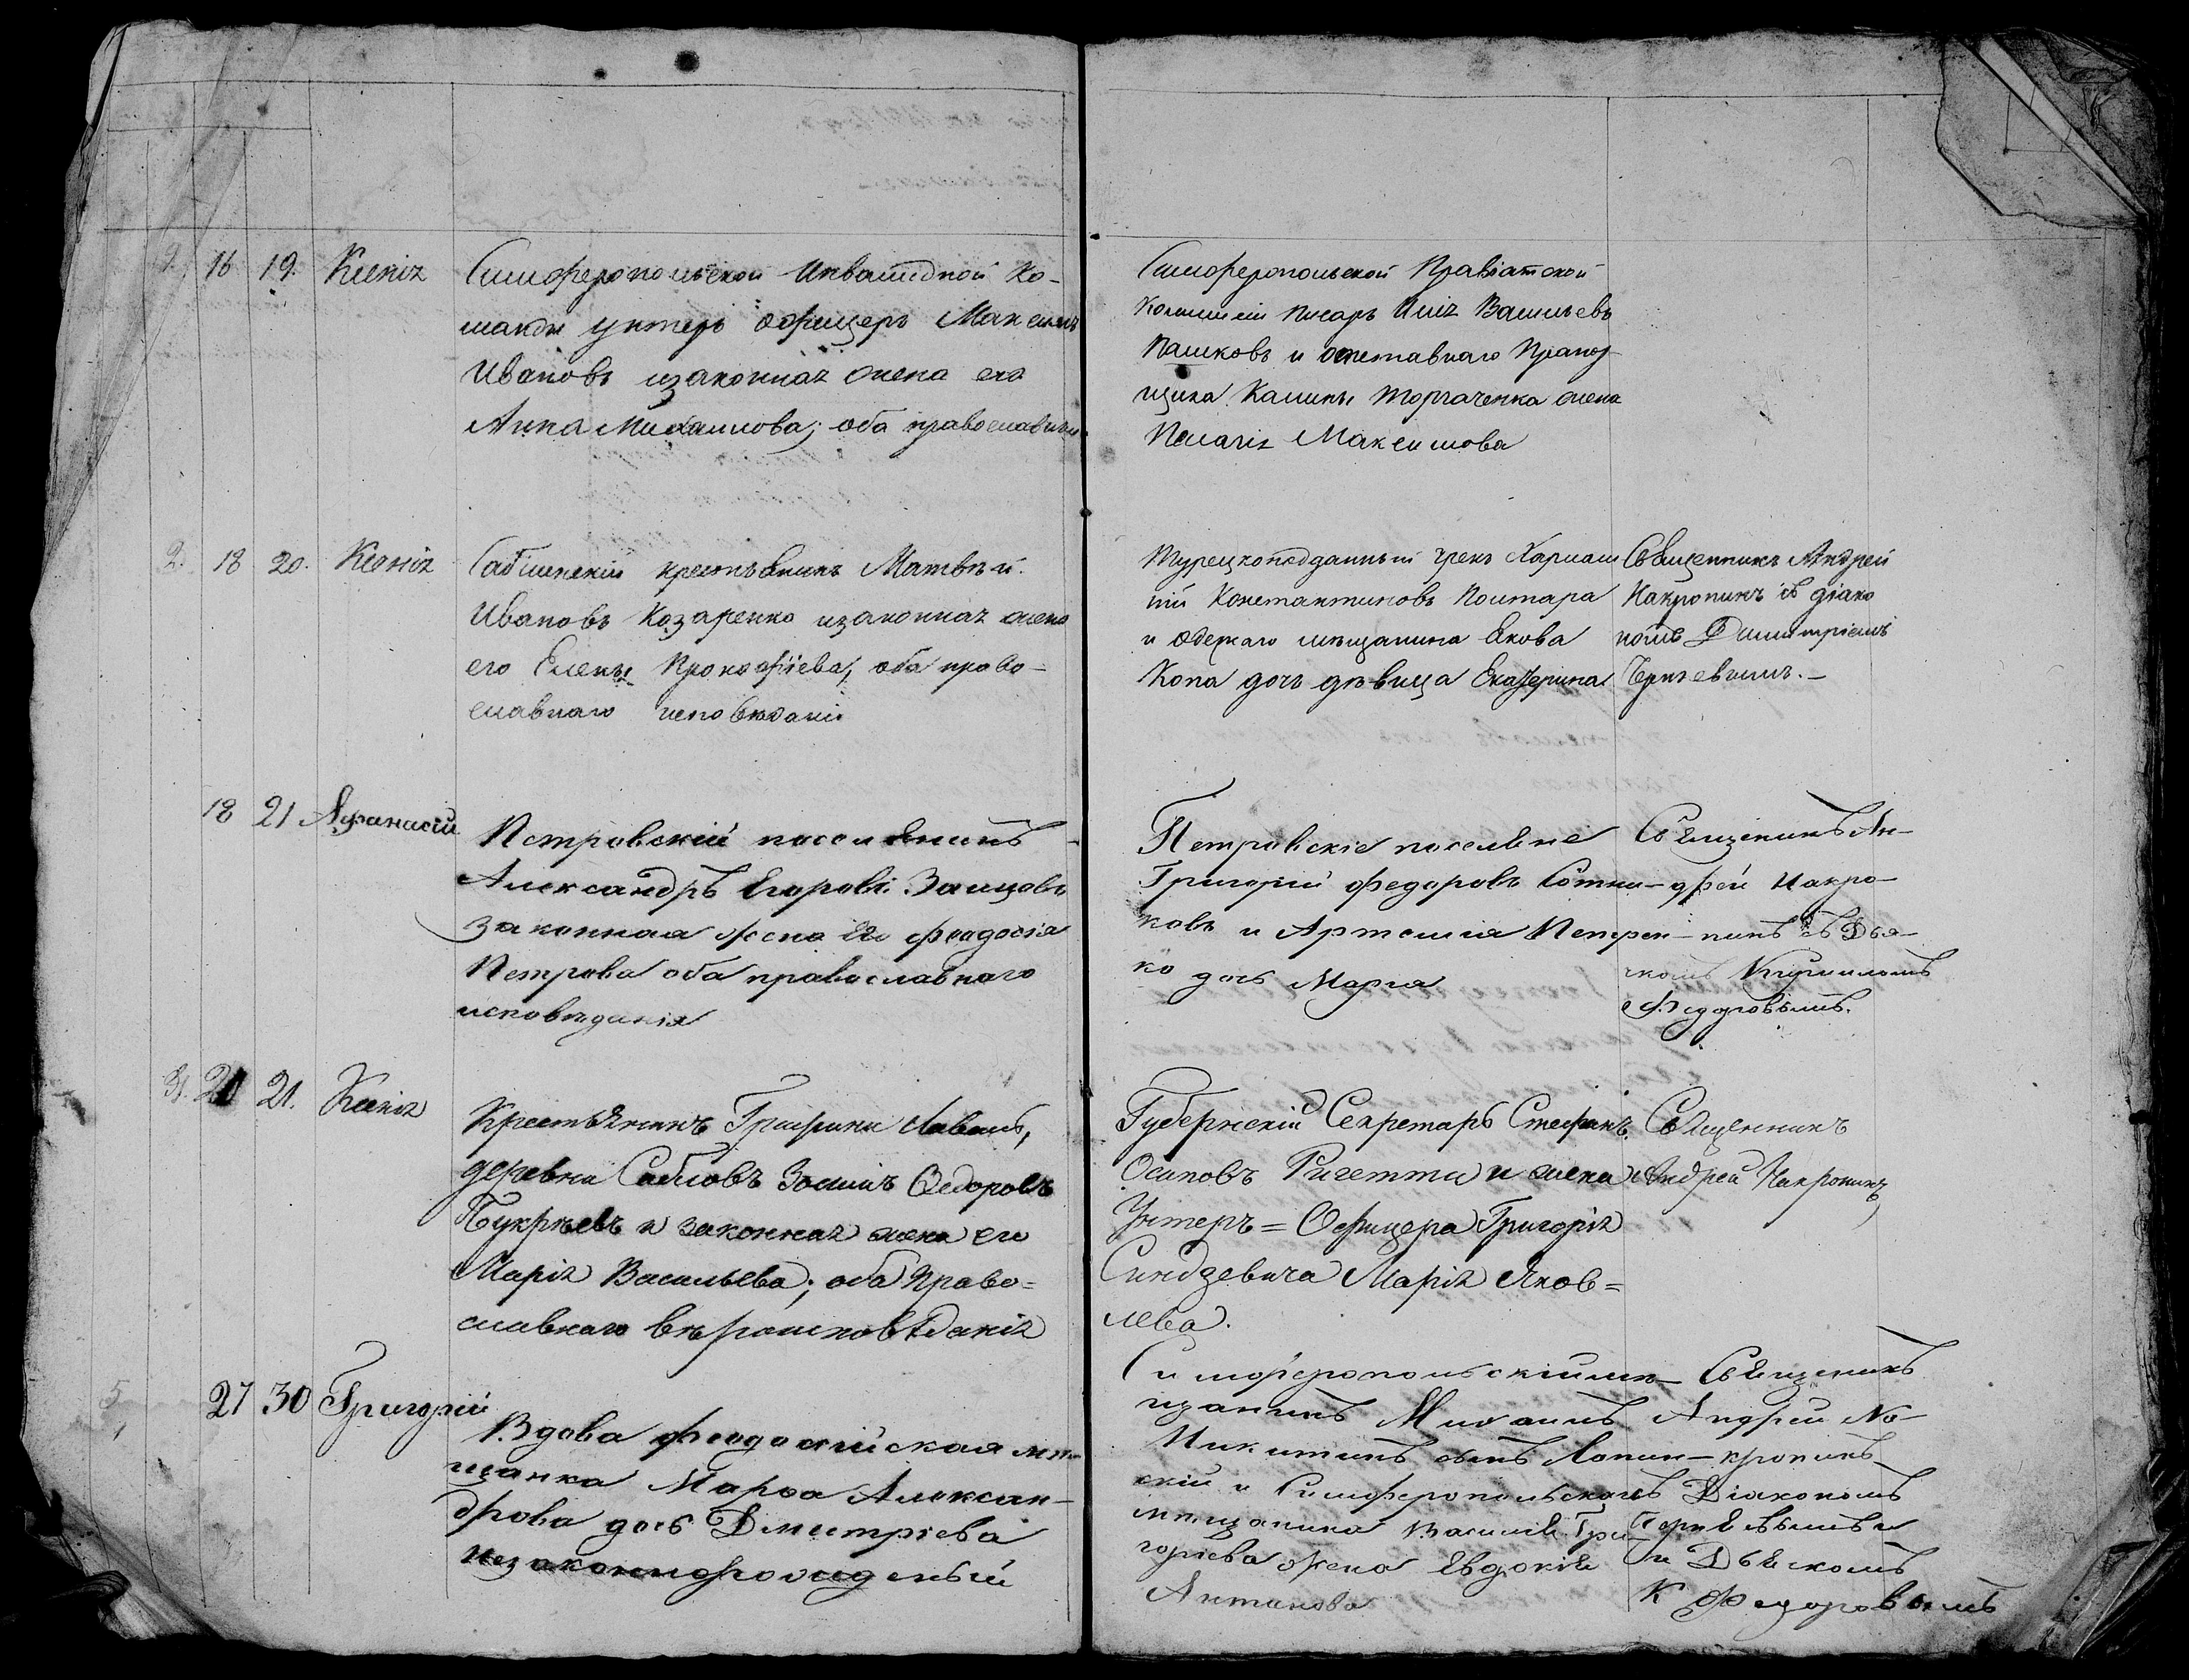 1. 16 19. Ксенія
Симферопольской Инвалидной ко-
манды унтеръ офицеръ Максимъ
Ивановъ изаконная жена его
Анна Михаилова; оба православныи
Симферопольской Правіатской
Комиссіи писарь Илія Васильевъ
Пашковъ и отставнаго Прапор-
щика Калины Торгаченка жена
Пелагія Максимова
2. 18 20. Ксенія
Саблинскіи крестьянинъ Матвѣй
Ивановъ Козаренко изаконная жена
его Елены Прокофіева, оба право-
славнаго исповѣданія
Турецкоподданный грекъ Харлам
пій Константиновъ Политара
и Одескаго мѣщанина Якова
Копа дочь дѣвица Екатерина
Священникъ Андрей
Накропинъ съ діако
номъ Димитріемъ
Черняевымъ.-
18 21 Афанасіи
Петровскій поселянинъ
Александръ Егоровъ Заицовъ
законная жена Его феодосія
Петрова оба православнаго
исповѣданія
Петровскіе поселяне
Григорій федоровъ Сотни-
ковъ и Артемия Петрен-
ко дочь Мария
Священикъ Ан-
дрей Накро-
пинъ съ Дья-
чкомъ Кириломъ
Федоровымъ.
3. 20 21. Ксенія
Крестьянинъ Графини Лаваль,
деревни Сабловъ Ѳедоровъ
Букрѣевъ и законная жена его
Марія Васильева; оба Право=
славнаго вѣроисповѣданія
Губернскій Секретарь Стефанъ
Осиповъ Ригетти и жена
Унтеръ=Офицера Григорія
Синдзевича Марія Яков=
лева.
Священникъ
Андрей Накропинъ
5 27 30 Григорій
Вдова феодосійская мѣ-
щанка Марфа Алексан-
дрова дочь Дмитріева
незаконнорожденый
Симферопольскіймѣ-
щанинъ Михаилъ
Никитинъ сынъ Лопин-
скій и Симферопольскаго
мѣщанина Василія Гри-
горіева жена Евдокія
Антонова
Священикъ
Андреи На-
кропинъ
съ Діакономъ
Черняевымъ
и Дьячкомъ
К Федоровымъ